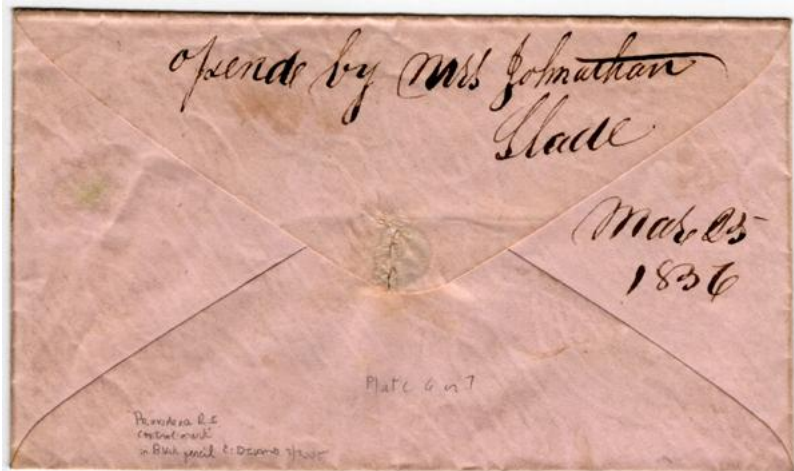 opende by Mrs Johnathan
Slade
Mar 25
1856
Plate 6 or 7
Providence R.I.
control mark
in Black pencil